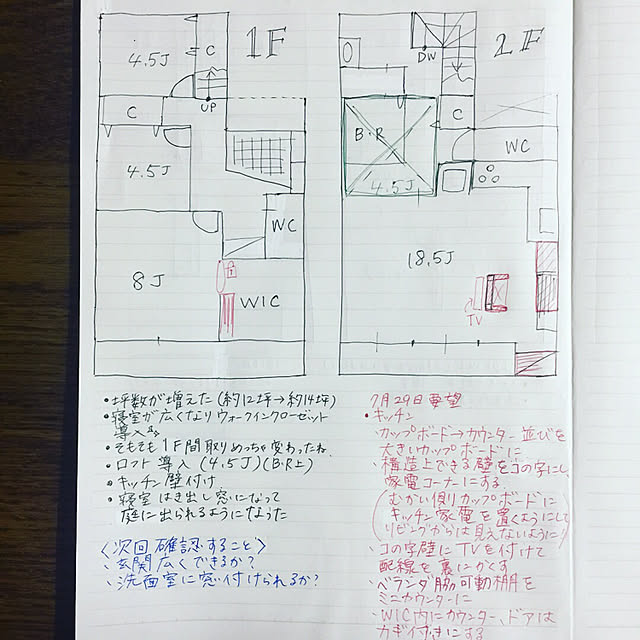 1F
2F
4.5J
C
UP
C
4.5J
8J
WC
WIC
DN
C
B・R
4.5J
WC
18.5J
TV
・坪数が増えた(約12坪→約14坪)
・寝室が広くなりウォークインクローゼット
導入
・そもそも1F間取りめっちゃ変わったね
・ロフト導入(4.5J)(B・R上)
・キッチン壁付け
・寝室はき出し窓になって
庭に出られるようになった
〈次回確認すること〉
・玄関広くできるか?
・洗面室に窓付けられるか?
7月29日要望
・キッチン
・カップボード→カウンター並びを
大きいカップボードに
・構造上できる壁をコの字にし
家電コーナーにする
(むかい側カップボードに
キッチン家電を置くようにして
リビングからは見えないように!)
・コの字壁にTVを付けて
配線を裏にかくす
・ベランダ脇可動棚を
ミニカウンターに
・WIC内にカウンター、ドアは
カギ付きにする